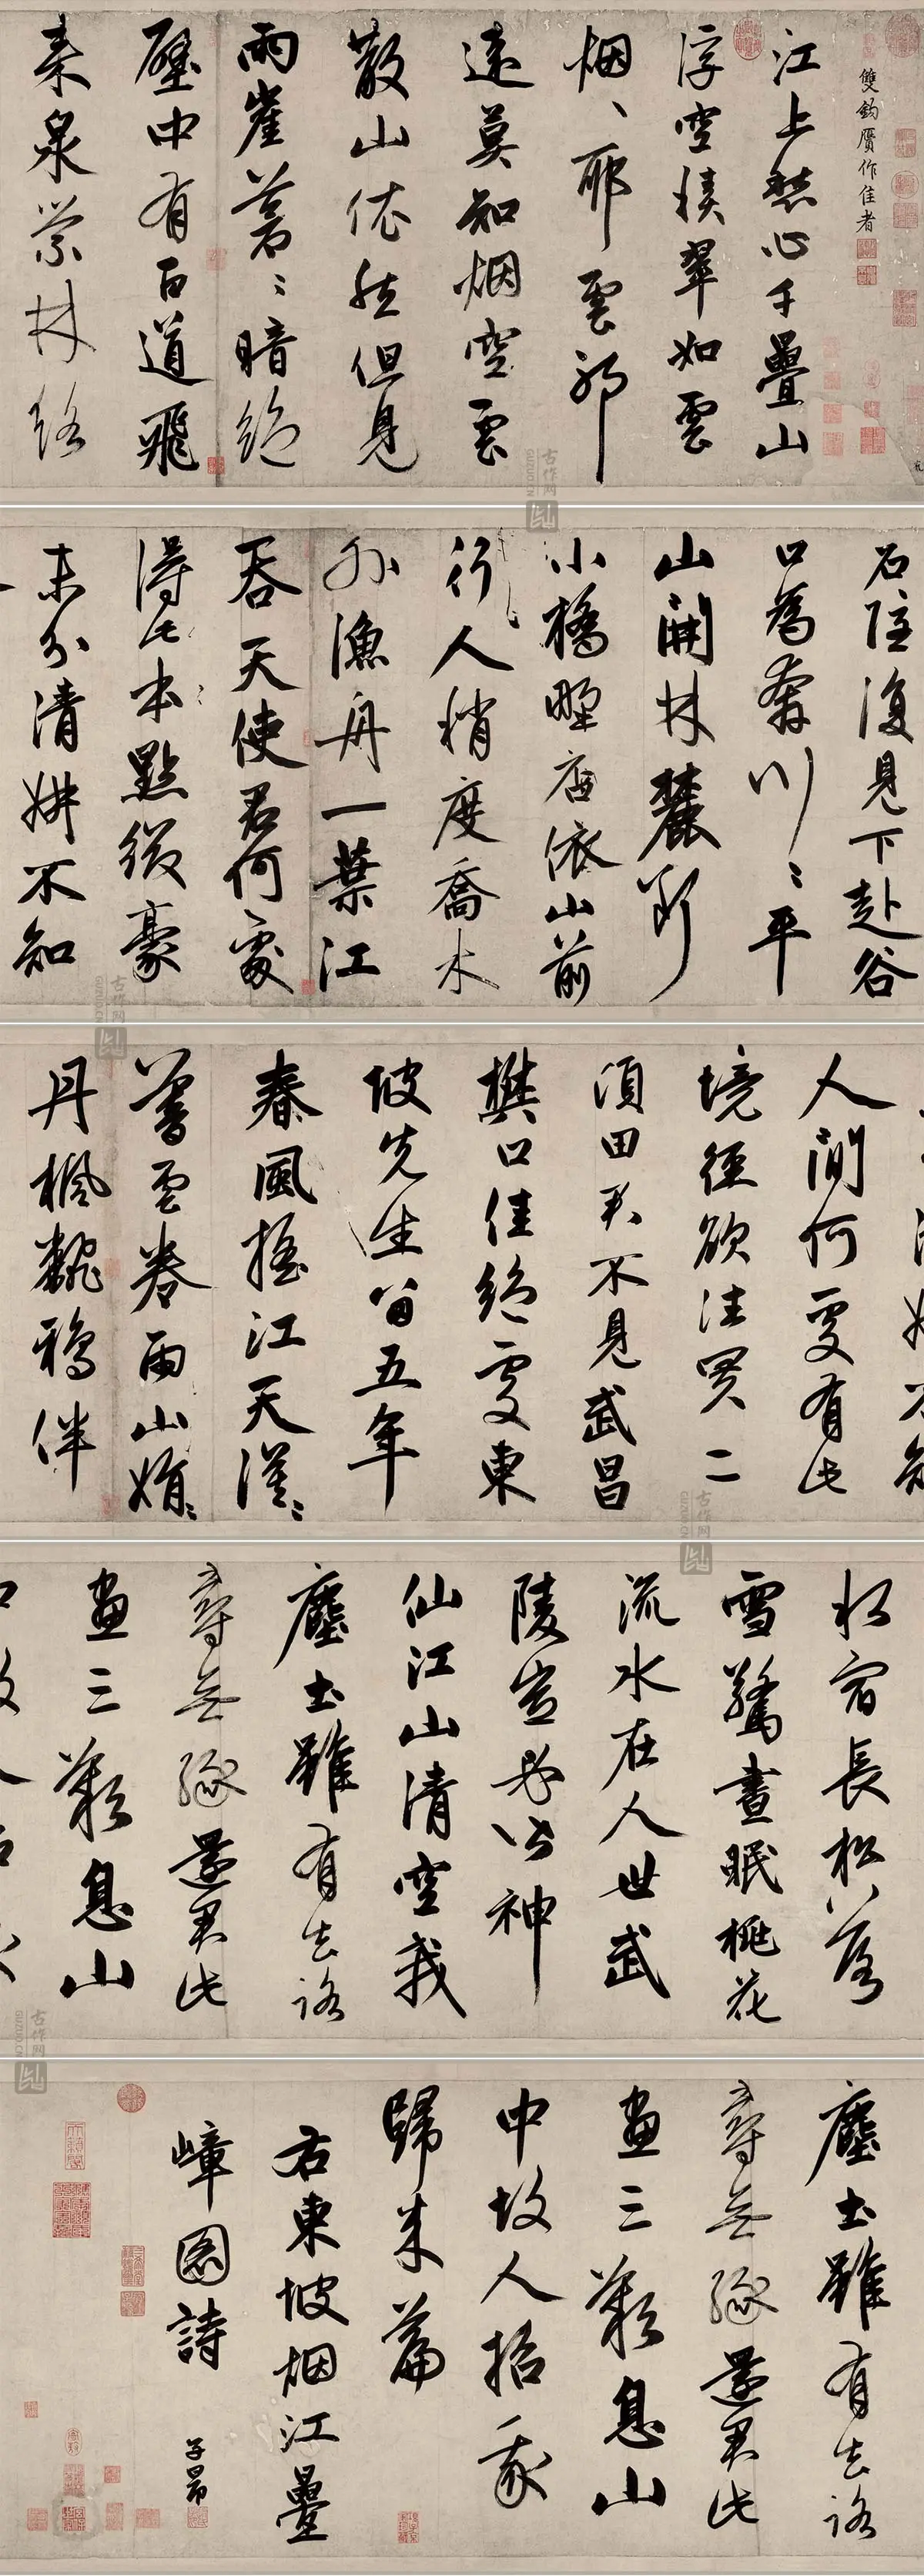 雙鈎贋作佳者
江上愁心千疊山
浮空積翠如雲
烟、耶雲耶
遠莫知烟空雲
散山依然但見
兩崖蒼〻暗絕
壑中有百道飛
来泉縈林絡
石隱復見下赴谷
口為奔川〻平
山開林麓斷
小橋野店依山前
行人稍度喬木
外漁舟一葉江
吞天使君何處
得此本點綴豪
末分清妍不知
人間何處有此
境徑欲往買二
頃田君不見武昌
樊口佳絕處東
坡先生留五年
春風搖江天漠〻
暮雲卷雨山娟〻
丹楓飜鴉伴
水宿長松落
雪驚晝眠桃花
流水在人世武
陵豈必皆神
仙江山清空我
塵土雖有去路
尋無緣還君此
畫三歎息山
塵土雖有去路
尋無緣還君此
畫三歎息山
中故人招我
歸来篇
右東坡烟江疊
嶂圖詩
子昂
古作网
GUZUO.CN
古作网
GUZUO.CN
古作网
GUZUO.CN
古作网
GUZUO.CN